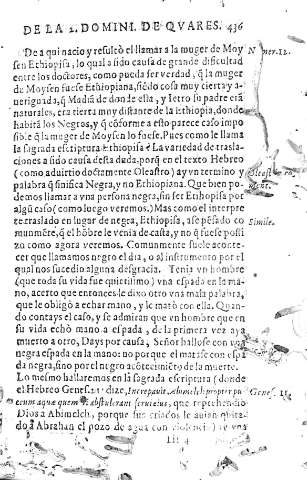 DE LA 2. DOMINI. DE QVARES. 436
De a qui nacio y resultò el llamar a la muger de Moy
sen Ethiopisa, lo qual a sido causa de grande dificultad
entre los doctores, como pueda ser verdad, q̃ la muger
de Moysen fuese Ethiopiana, siẽdo cosa muy cierta y a-
ueriguada, q̃ Madiã de donde ella, y Ietro su padre erã
naturales, era tierra muy distante de la Ethiopia, donde
habitã los Negros, y q̃ cõforme a esto parece caso impo
sible q̃ la muger de Moysen lo fuese. Pues como le llama
la sagrada escriptura Ethiopisa? La variedad de trasla-
ciones a sido causa desta duda. porq̃ en el texto Hebreo
(como aduirtio doctamente Oleastro) ay vn termino y
palabra q̃ sinifica Negra, y no Ethiopiana. Que bien po-
demos llamar a vna persona negra, sin ser Ethiopisa por
algũ caso (como luego veremos.) Mas como el interpre
te traslado en lugar de negra, Ethiopisa, a se pẽsado co
munmẽte, q̃ el nõbre le venia de casta, y no q̃ fuese posti
zo como agora veremos. Comunmente suele aconte-
cer que llamamos negro el dia, o al instrumento por el
qual nos sucedio alguna desgracia. Tenia vn hombre
(que toda su vida fue quietisimo) vna espada en la ma-
no, acerto que entonces le dixo otro vna mala palabra,
que le obligò a echar mano, y le matò con ella. Quan-
do contays el caso, y se admiran que vn hombre que en
su vida echò mano a espada, de la primera vez aya
muerto a otro, Days por causa, Señor hallose con vna
negra espada en la mano: no porque el matase con espa
da negra, sino por el negro acõtecimiẽto de la muerte.
Lo mesmo hallaremos en la sagrada escriptura (donde
el Hebreo Genes. 21. dize, Increpauit Abimelech propter pu
teum aquæ quem abstulerant serui eius, que reprehendio
Dios a Abimelch, porque sus criados le auian quita-
do a Abrahan el pozo de agua con violencia) se vna
Iii 4
Nu er. 12.
Oleast
Simile.
Genes.